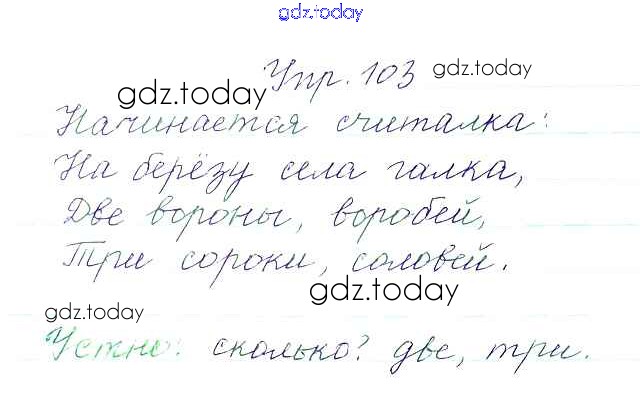 gdz.today
Упр. 103 gdz.today
gdz.today
Начинается считалка:
На берёзу села галка,
Две вороны, воробей,
Три сороки, соловей.
gdz.today
gdz.today
Устно: сколько? две, три.